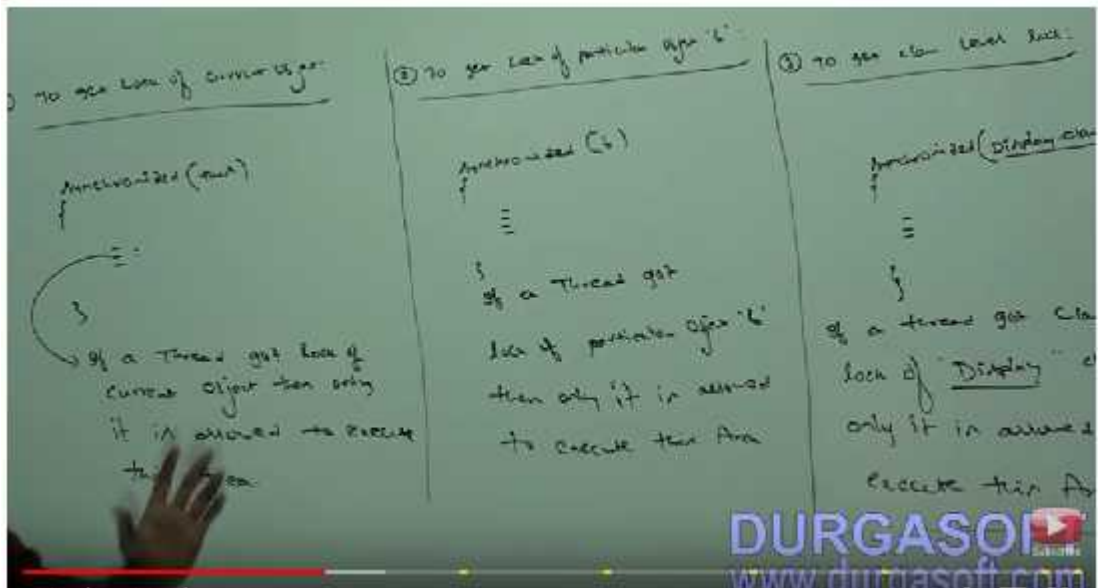 ) To get Lock of Current Object:
synchronized (this)
{
}
If a Thread got Lock of
Current Object then only
it is allowed to Execute
Area
② To get Lock of particular Object 'b':
synchronized (b)
{
}
If a Thread got
lock of particular Object 'b'
then only it is allowed
to Execute this Area
③ To get Class Level Lock:
synchronized (Display.clas
{
}
If a thread got Cla
lock of "Display" cl
only it is allowed
Execute this Ar
DURGASOFT
Subscribe
www.durgasoft.com